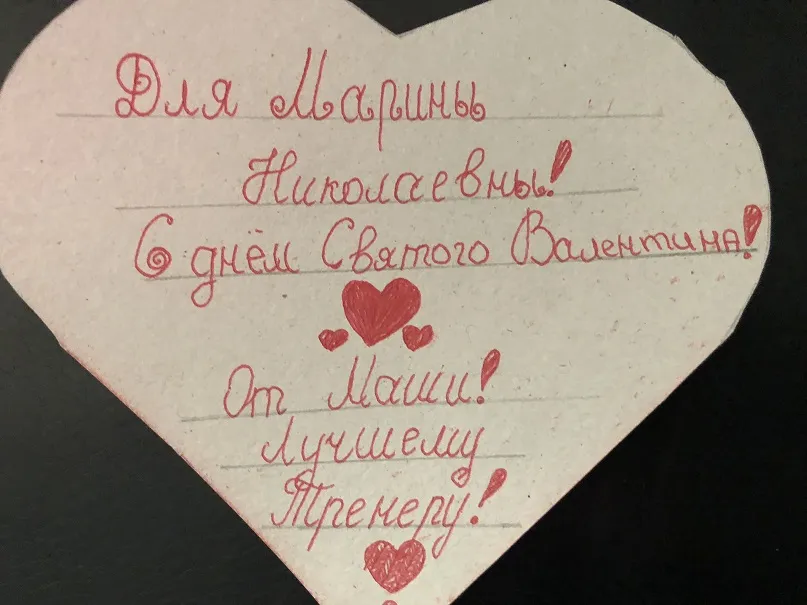 Для Марины
Николаевны!
С днём Святого Валентина!
От Маши!
Лучшему
Тренеру!